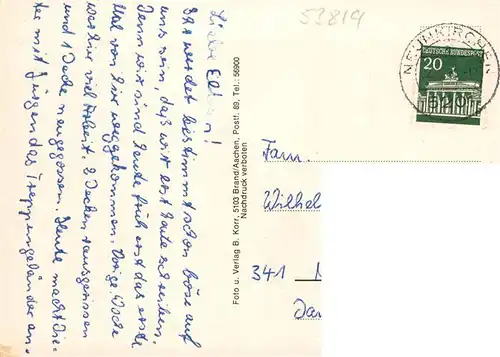 Liebe Eltern!
Ihr werdet bestimmt schon böse auf
uns sein, daß wir erst heute schreiben.
Denn wir sind heute früh erst das erste
Mal von hier weggekommen. Vorige Woche
war hier viel Arbeit. 2 Decken rausgerissen
und 1 Decke neugegossen. Heute macht Die-
ter mit Jürgen das Treppengeländer an.
Foto u. Verlag B. Korr, 5103 Brand/Aachen, Postf. 89, Tel.: 56900
Nachdruck verboten
53819
NEUNKIRCHEN
DEUTSCHE BUNDESPOST
20
5207
Fam.
Wilhel
341